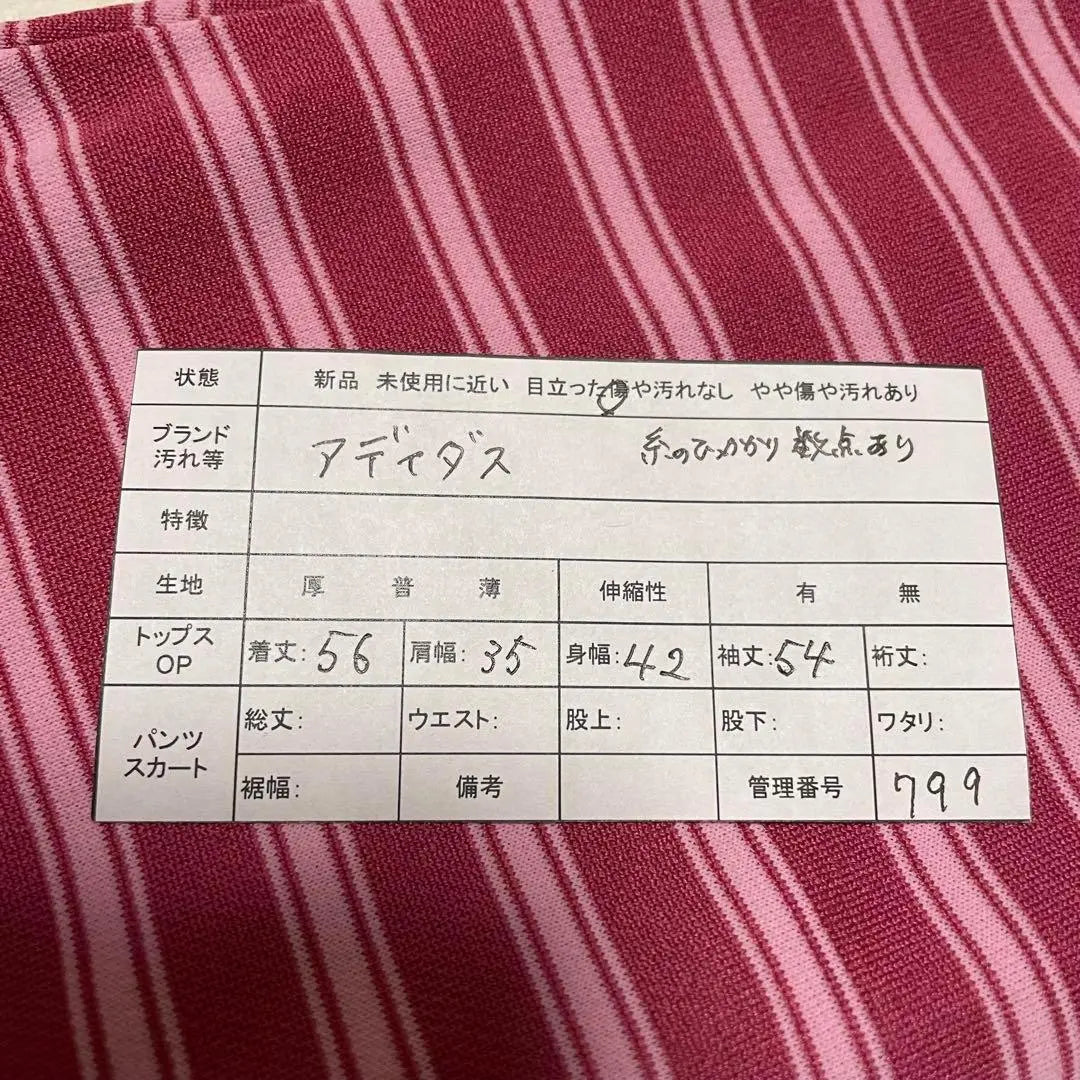 状態 新品 未使用に近い 目立った傷や汚れなし やや傷や汚れあり
ブランド
汚れ等
アディダス 糸のひっかかり 数点あり
特徴
生地 厚 普 薄 伸縮性 有 無
トップス
OP
着丈:56 肩幅:35 身幅:42 袖丈:54 裄丈:
パンツ
スカート
総丈: ウエスト: 股上: 股下: ワタリ:
裾幅: 備考 管理番号 799